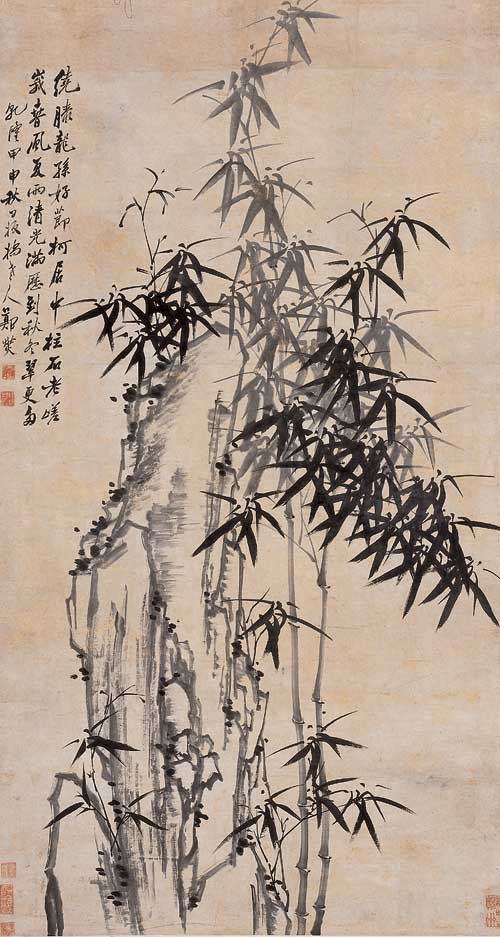 繞膝龍孫好節柯居中柱石老嵯
峩春風夏雨清光滿歷到秋冬翠更多
乾隆甲申秋日板橋老人鄭燮